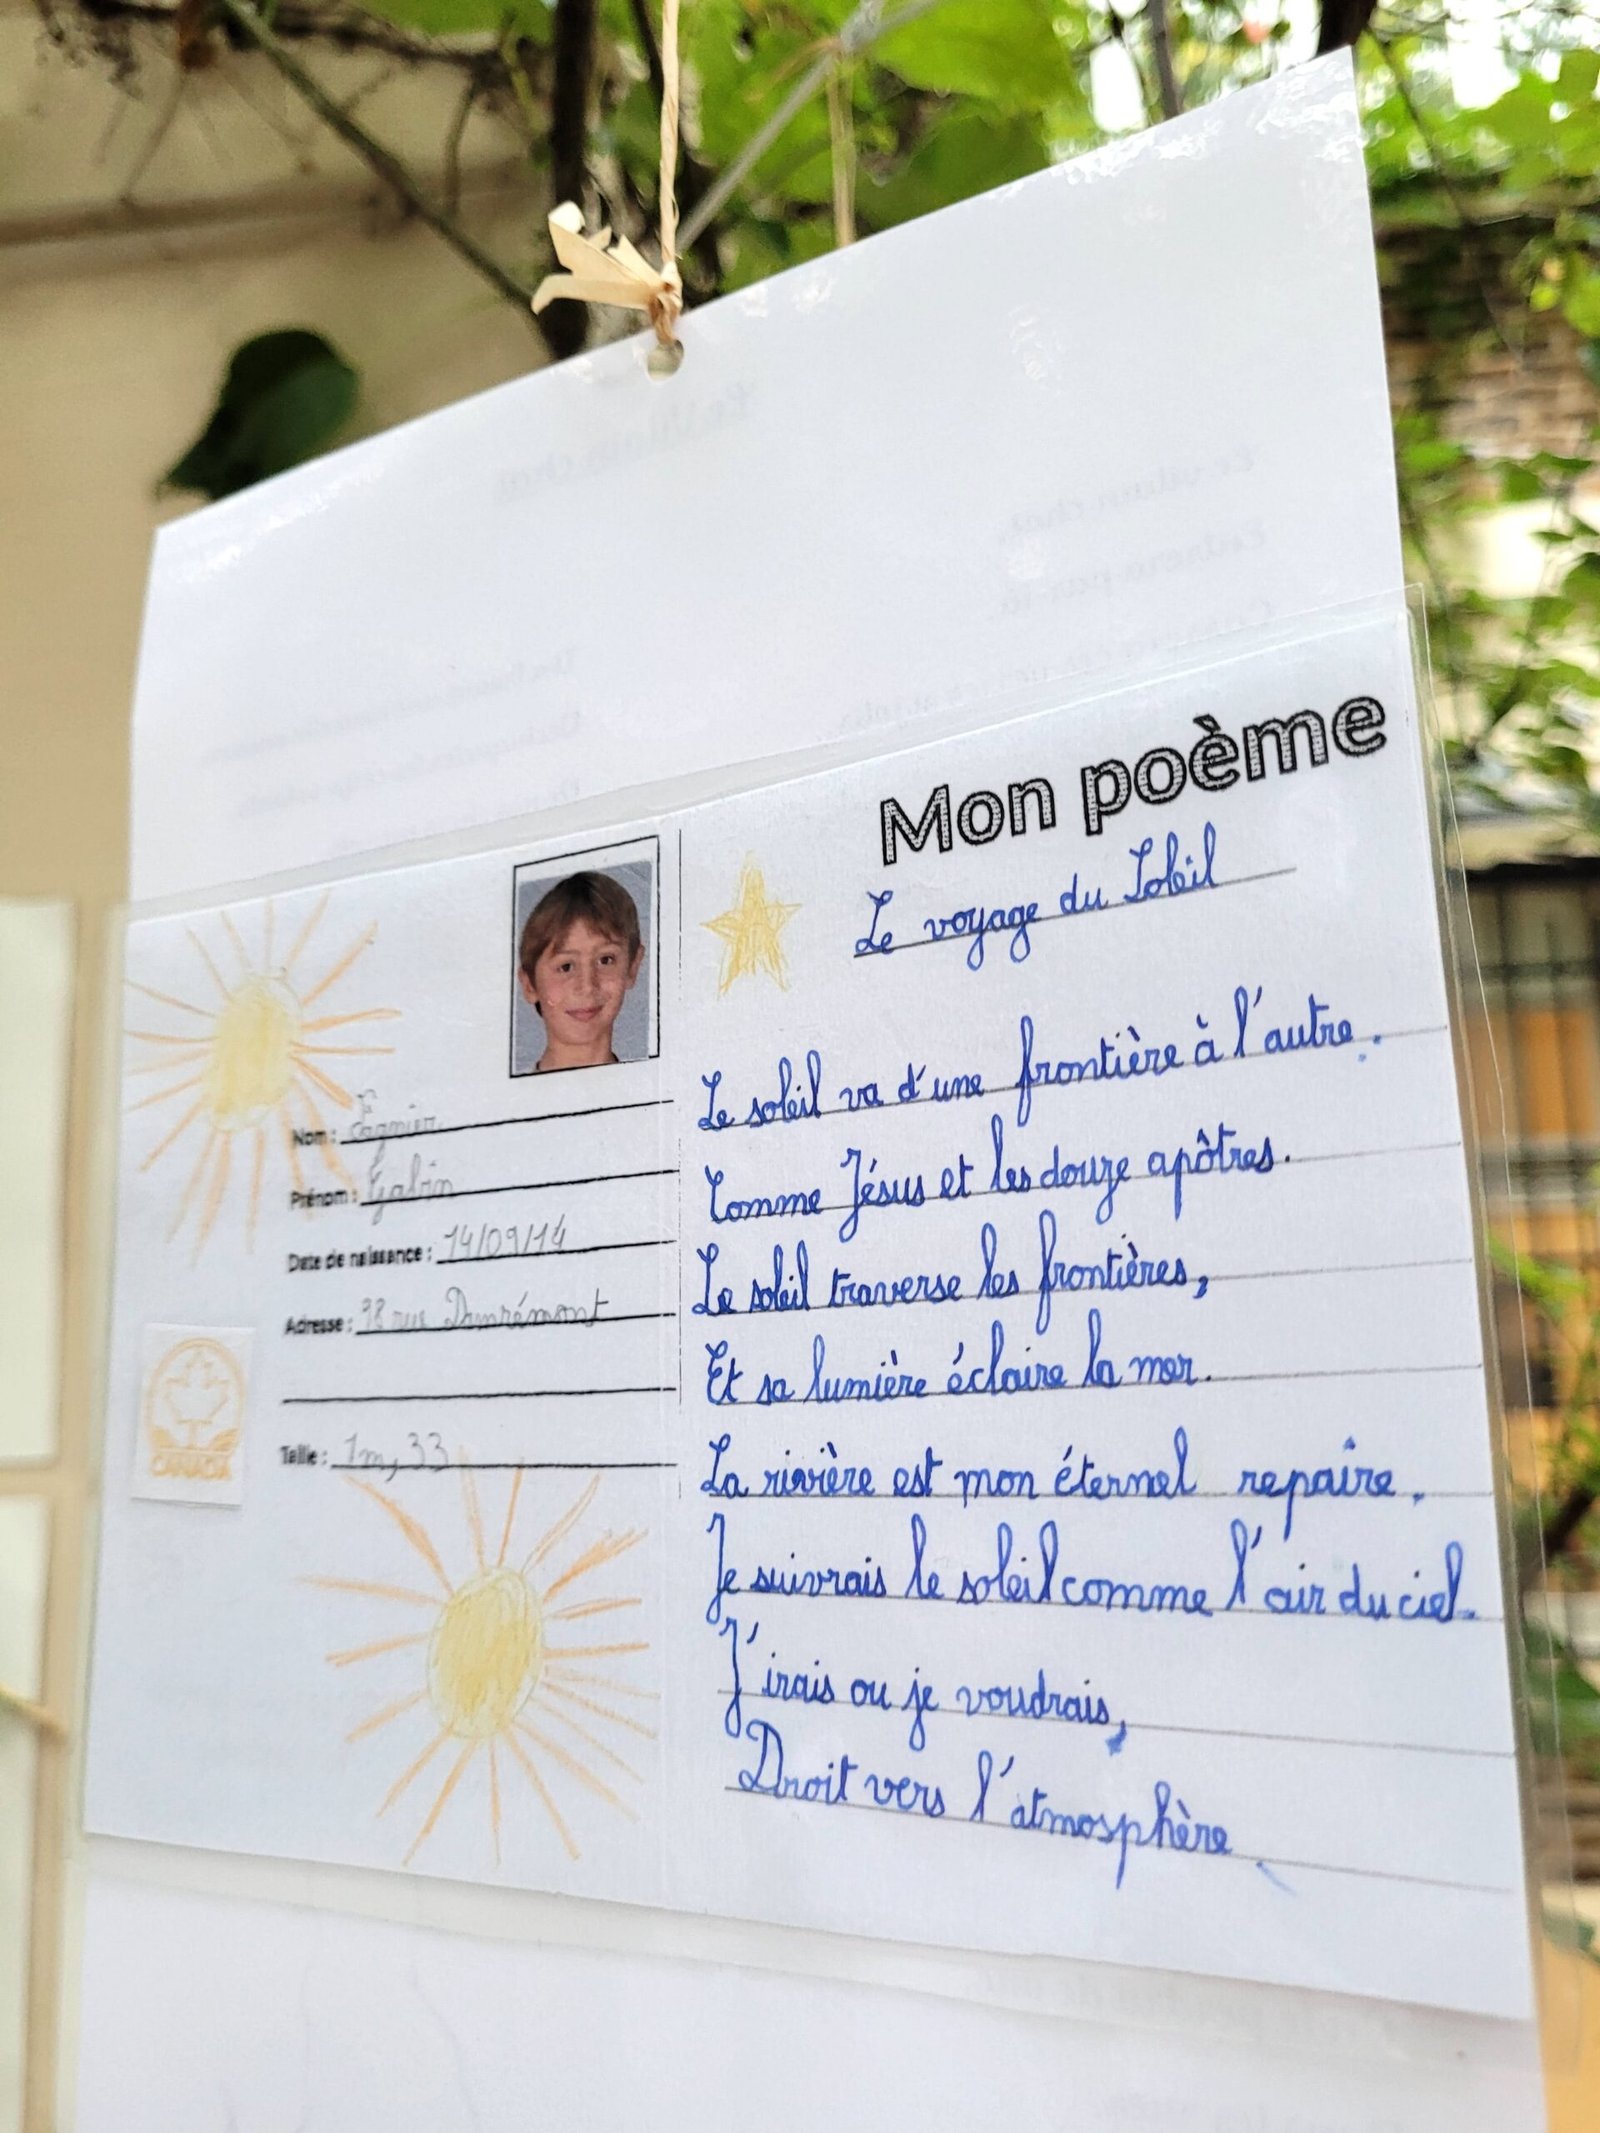 Mon poème
Le voyage du Soleil
Le soleil va d'une frontière à l'autre.
Comme Jésus et les douze apôtres.
Le soleil traverse les frontières,
Et sa lumière éclaire la mer.
La rivière est mon éternel repaire.
Je suivrais le soleil comme l'air du ciel.
J'irais ou je voudrais,
Droit vers l'atmosphère
Nom :
Prénom : Gabin
Date de naissance : 14/09/14
Adresse : 98 rue Damrémont
Taille : 1m,33
CANADA